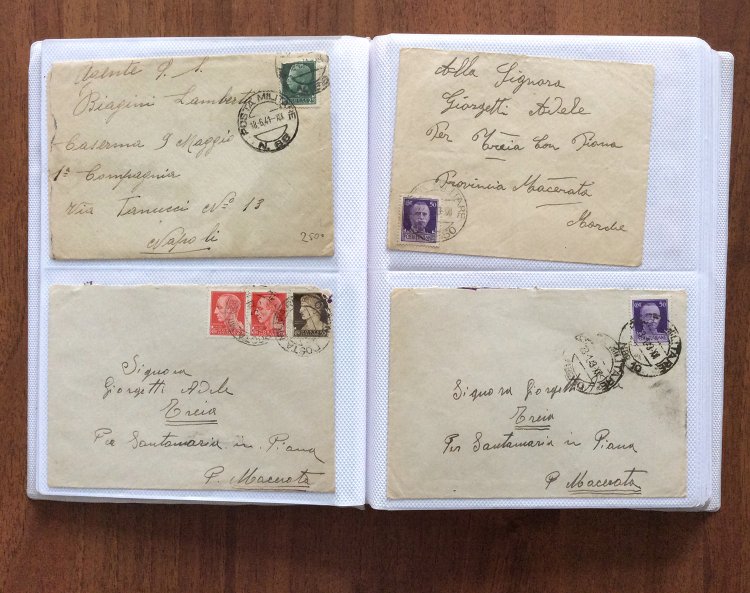 Agente P. S.
Biagini Lamberto
Caserma 9 Maggio
1ª Compagnia
Via Tanucci Nº 13
Napoli
2500
POSTA MILITARE
18.6.41-XIX
N. 66
Alla Signora
Giorgetti Adele
Per Treia Con Piana
Provincia Macerata
Marche
50
Signora
Giorgetti Adele
Treia
Per Santamaria in Piana
P. Macerata
POSTA
Signora Giorgetti
Treia
Per Santamaria in Piana
P Macerata
50